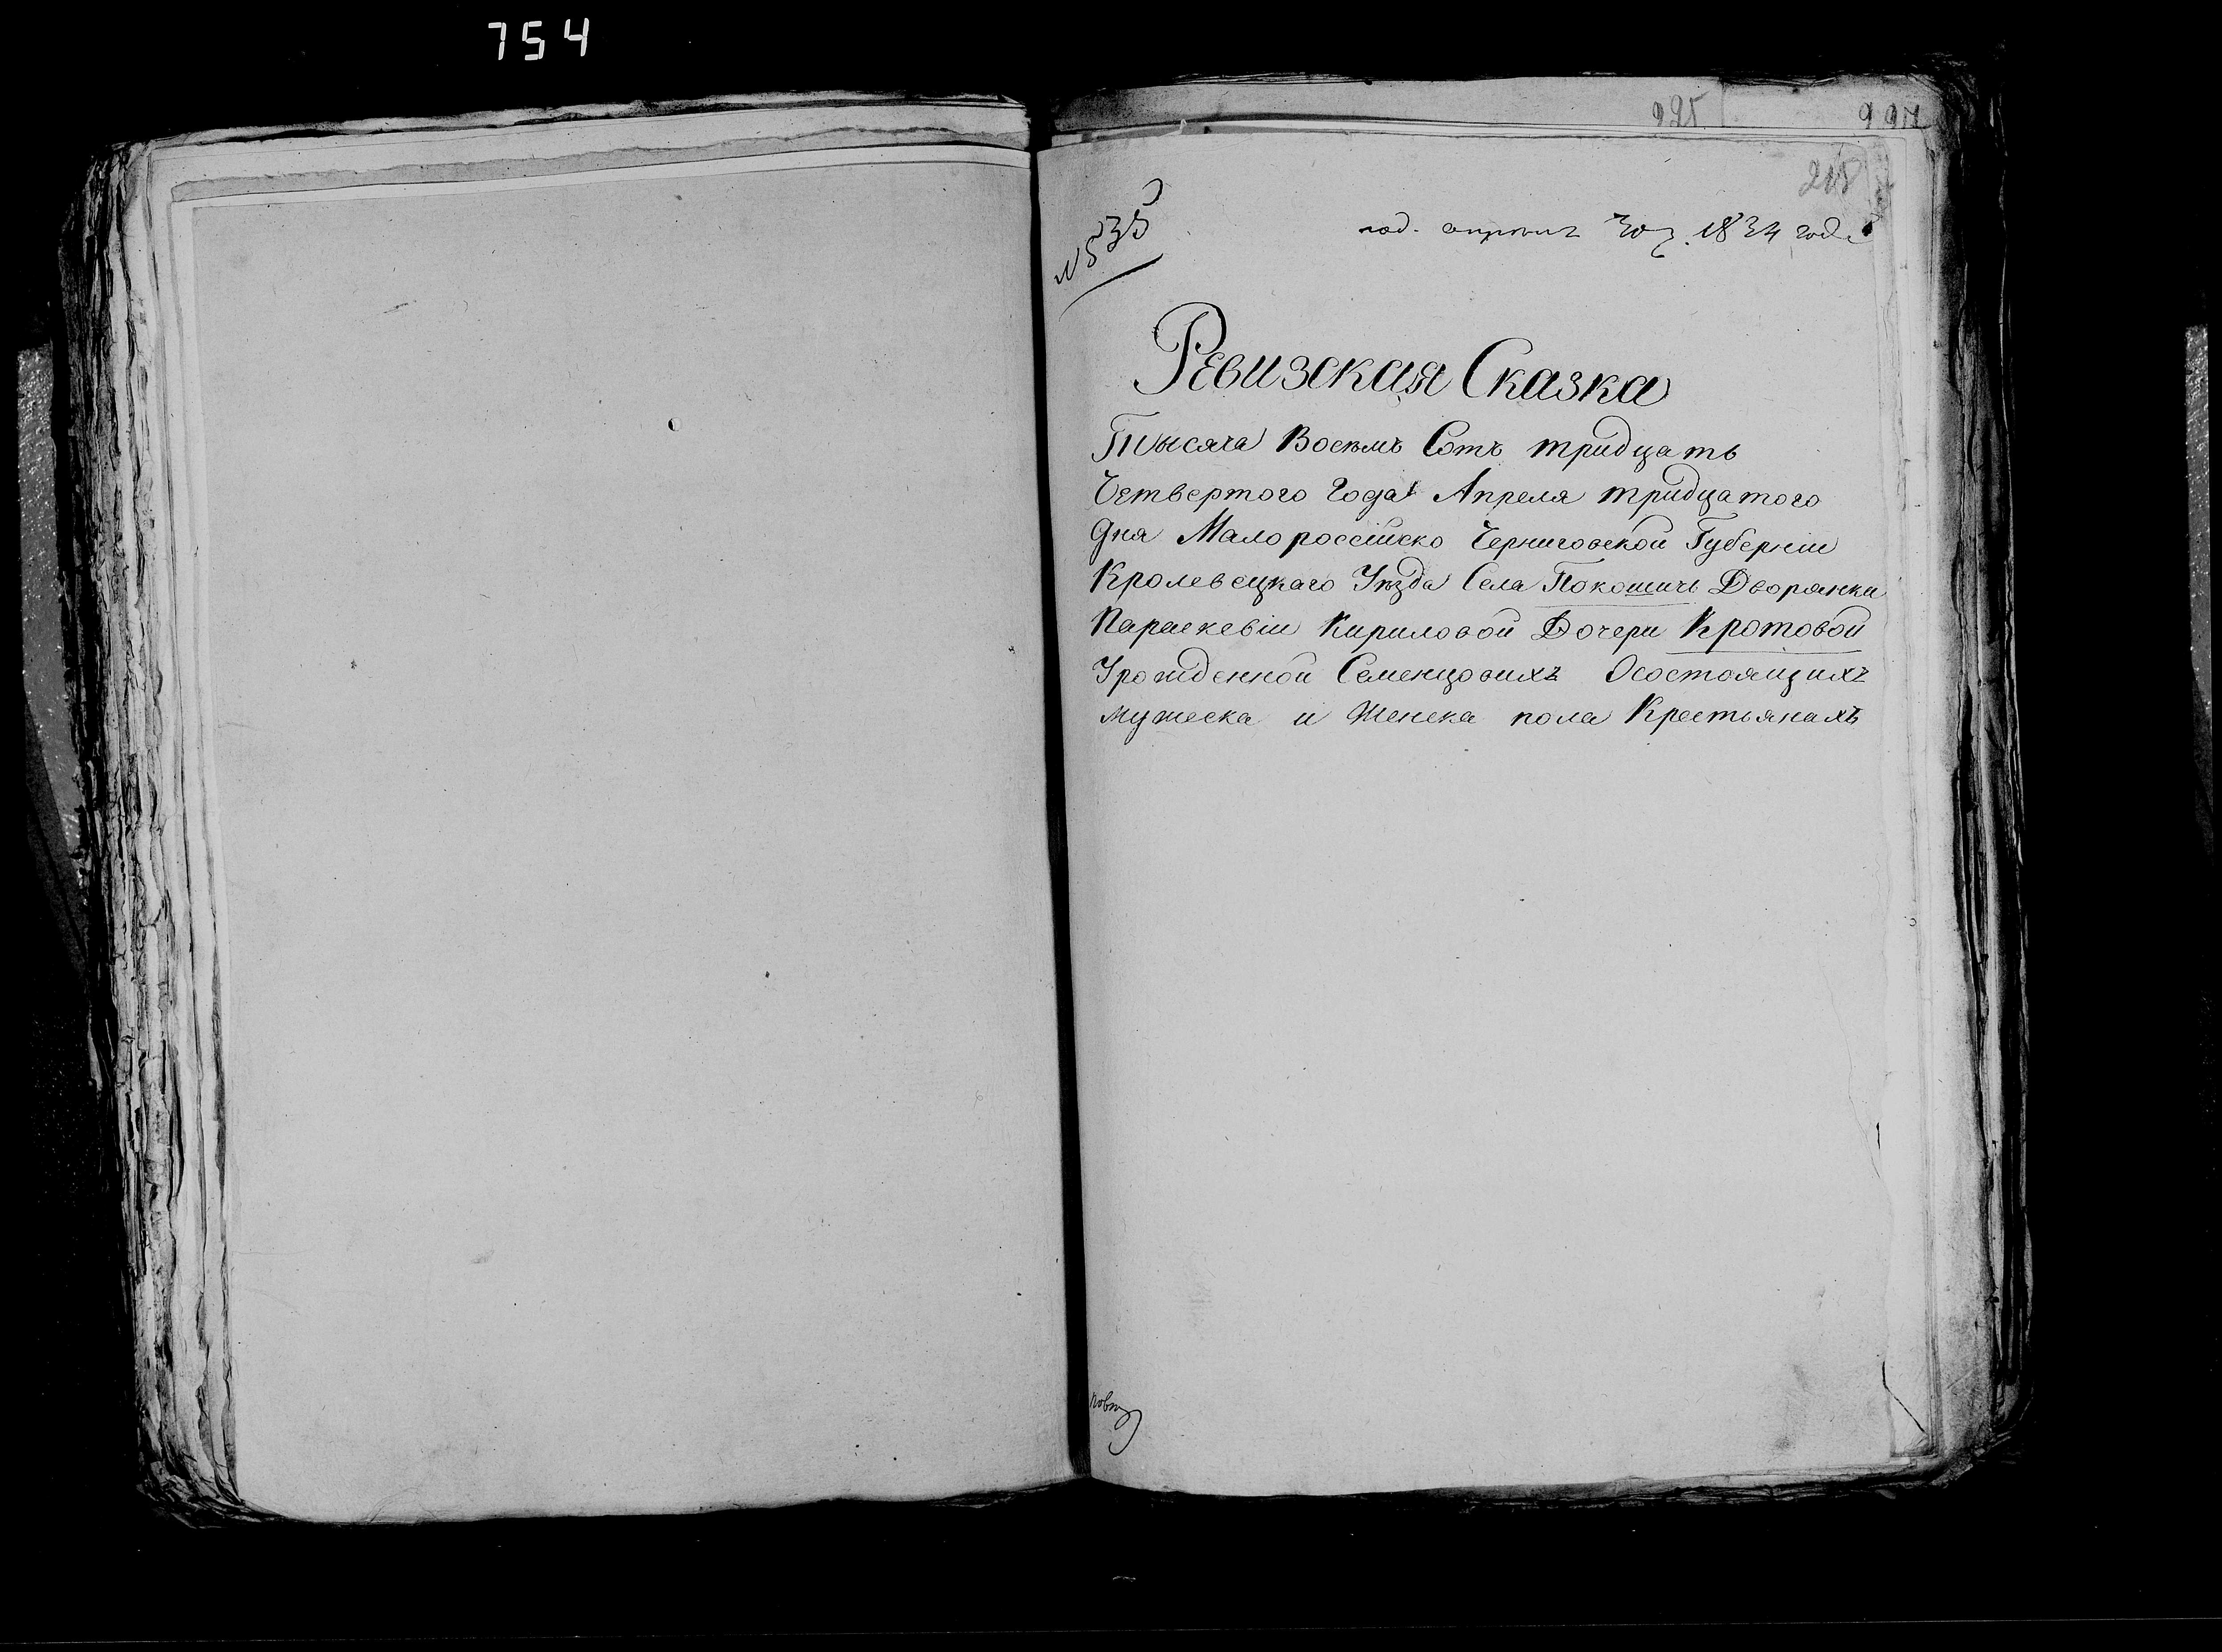 754
925
997
218
№ 535
под. апреля 30 д. 1834 года
Ревизская Сказка
Тысяча Восемь Сотъ тридцать
Четвертого Года Апреля тридцатого
дня Малороссійско Черниговской Губерніи
Кролевецкаго Уѣзда Села Покошичь Дворянки
Параскевіи Кириловой Дочери Кротовой
Урожденной Семенцовихъ Осостоящихъ
мужеска и Женска пола Крестьянахъ